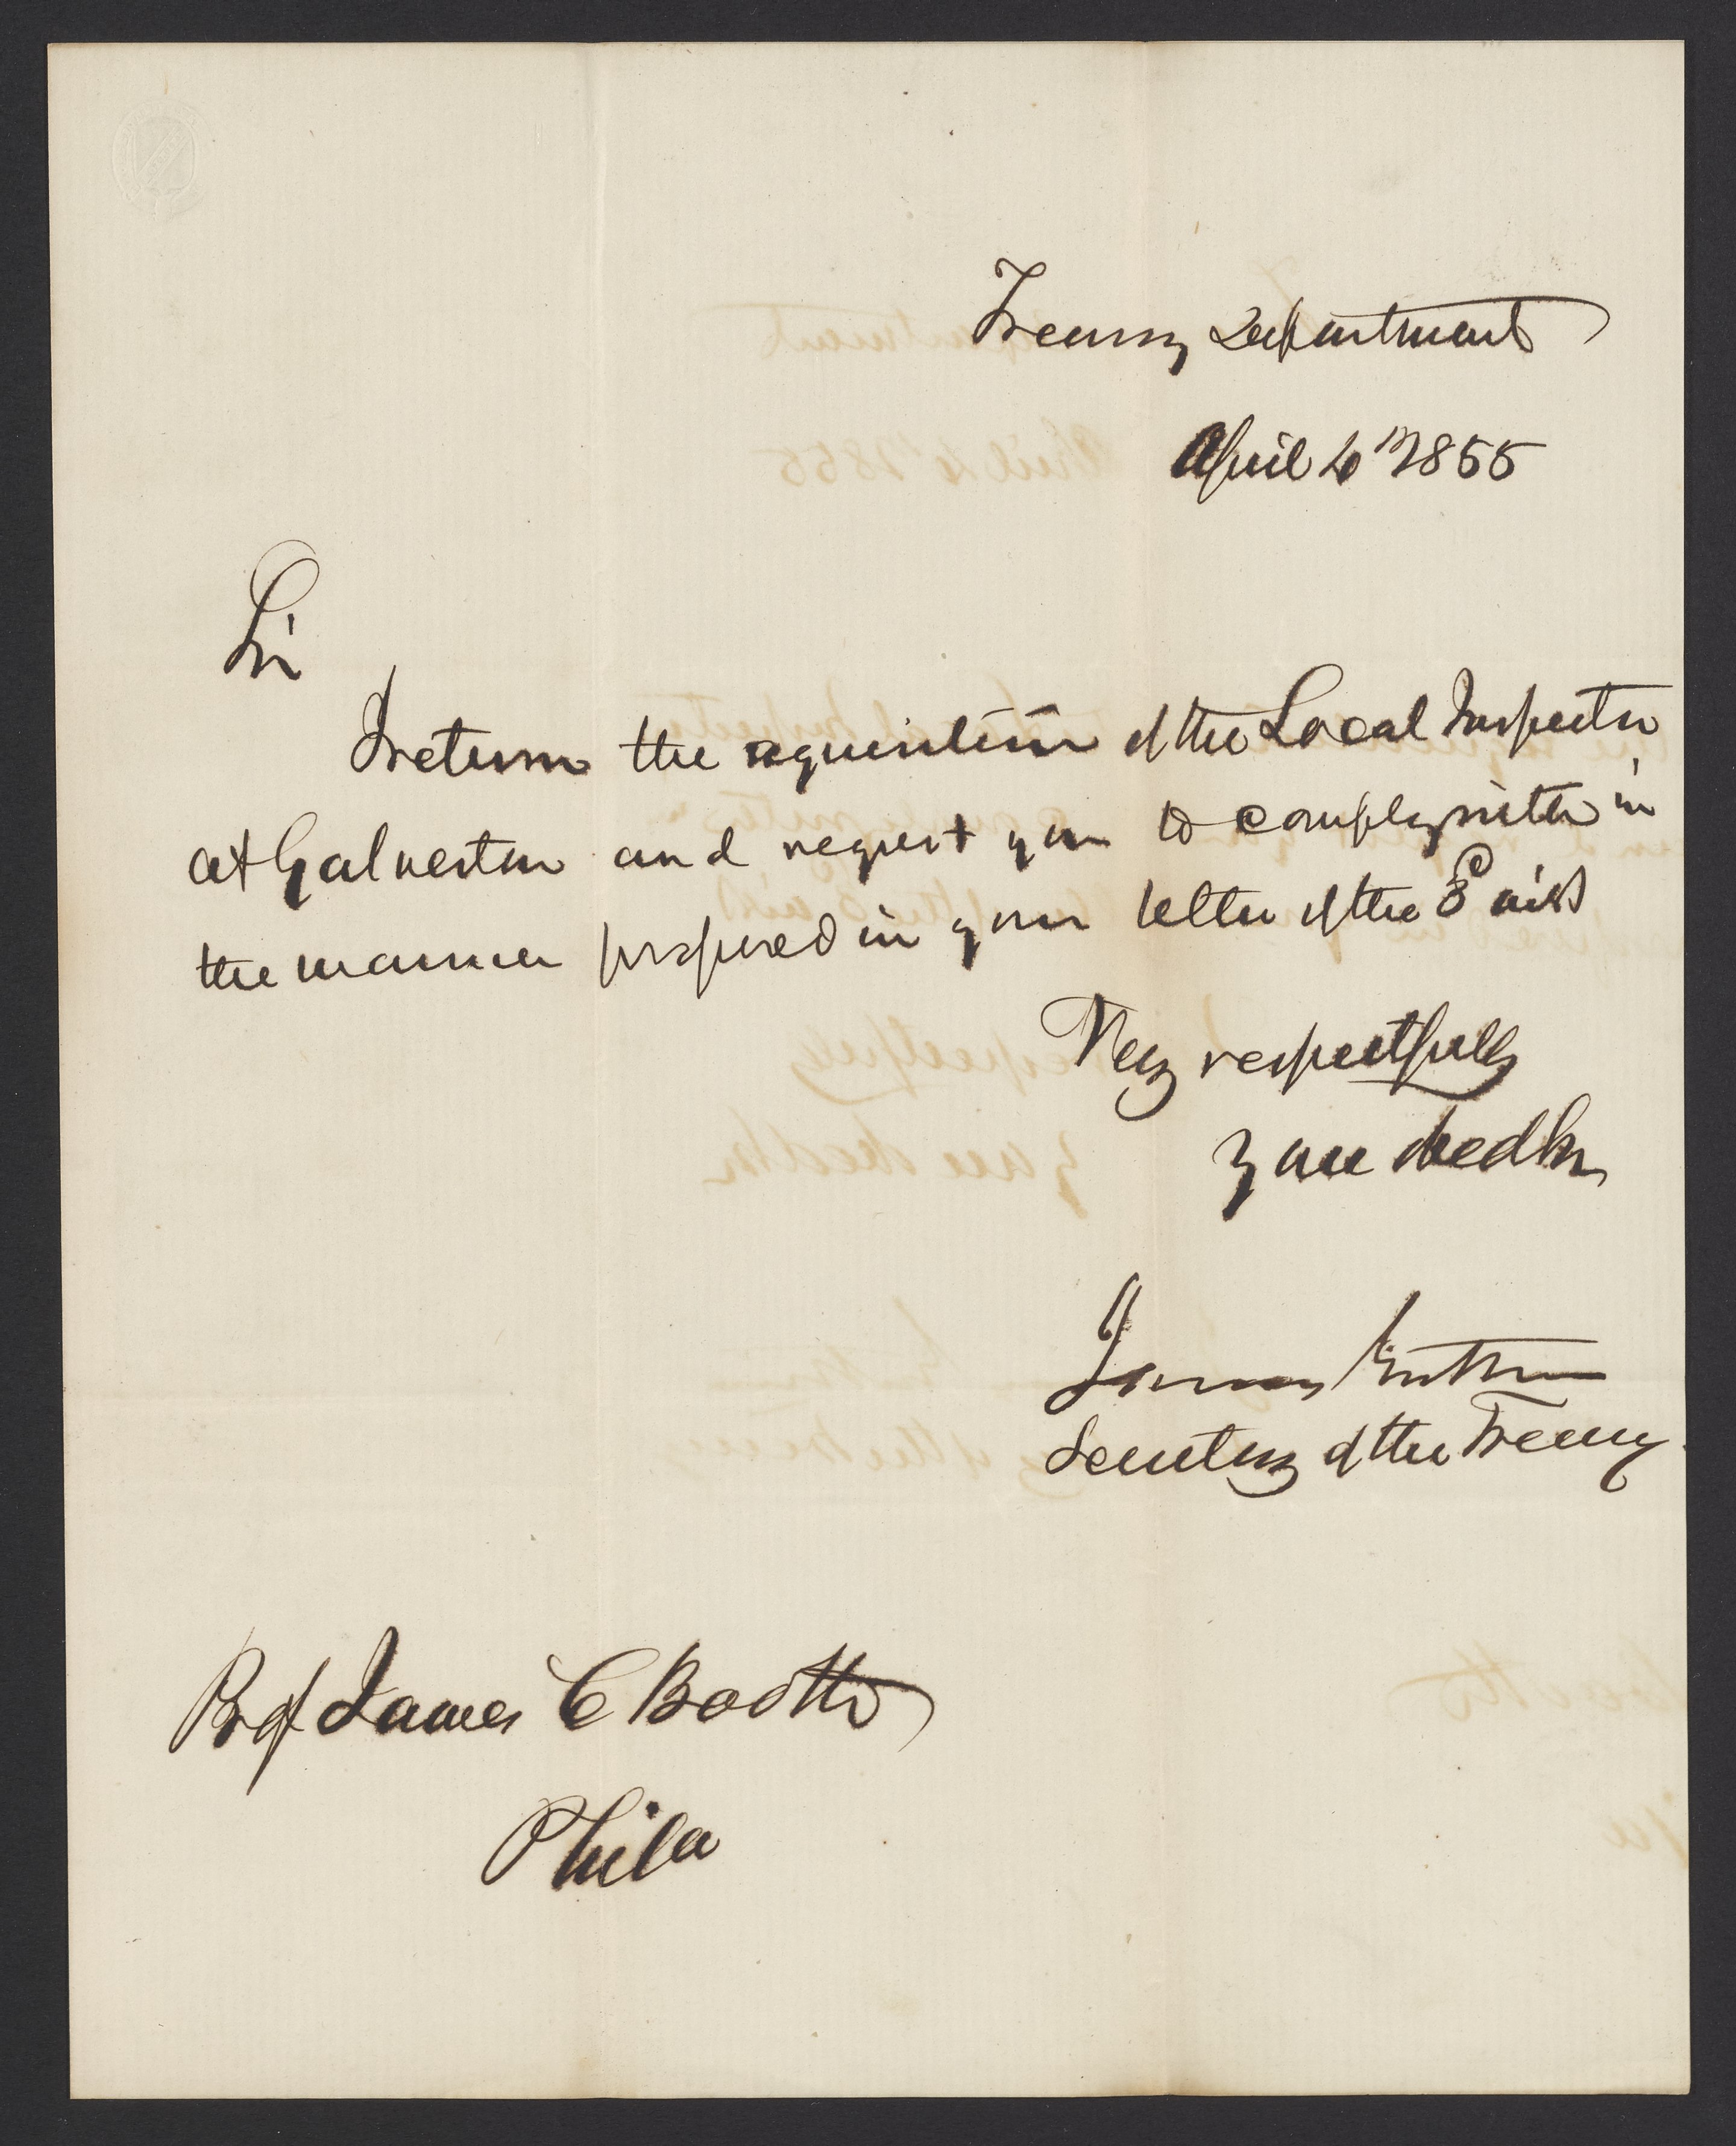 Treasury Department
April 4th 1855
Sir
I return the requisition of the Local Inspector
at Galveston and request you to comply with in
the manner proposed in your letter of the 3d inst
Very respectfully
Your Obed Sr
James Guthrie
Secretary of the Treasury
Prof James C Booth
Phila